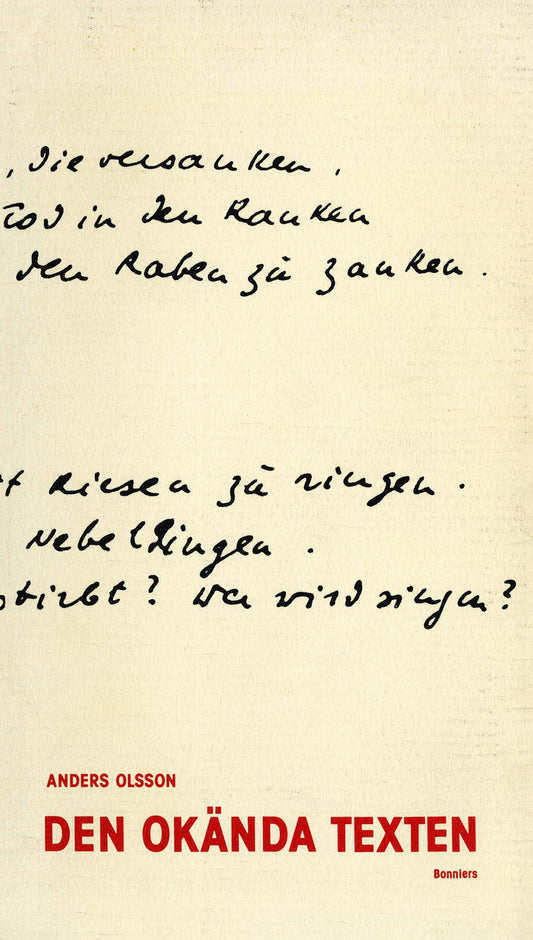 , die versanken,
Tod in den Ranken
den Raben zu zanken.
Riesen zu ringen.
Nebeldingen.
stirbt? wer wird singen?
ANDERS OLSSON
DEN OKÄNDA TEXTEN
Bonniers